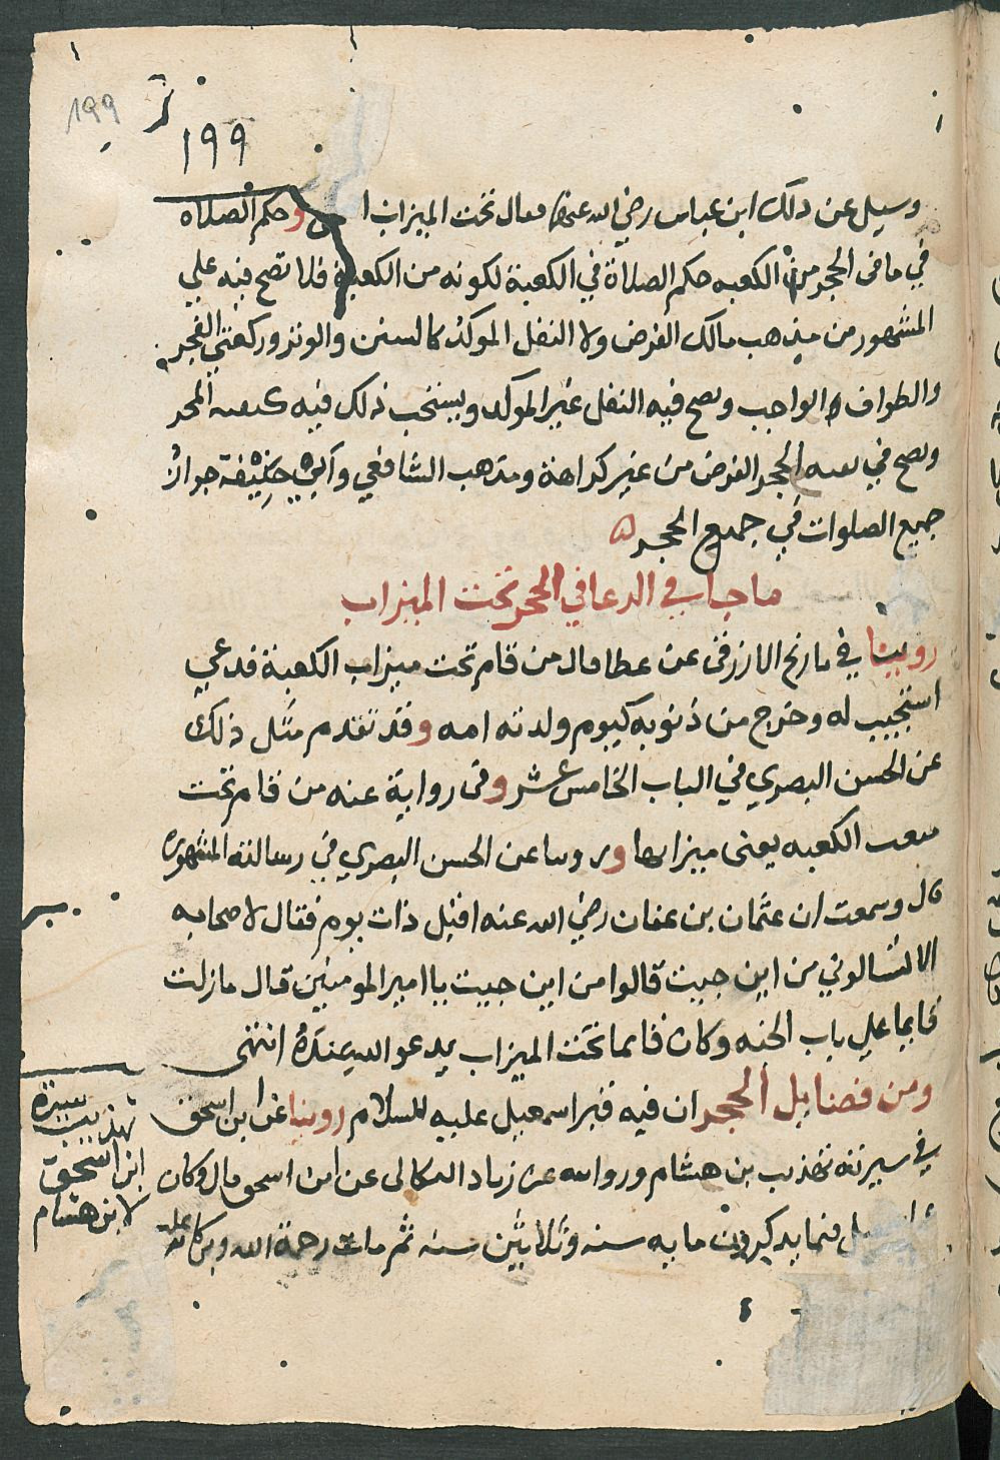 199
١٩٩
وسيل عن ذلك ابن عباس رضي الله عنهما فقال تحت الميزاب وحكم الصلاة
في ما في الحجر من الكعبه حكم الصلاة في الكعبة لكونه من الكعبة فلا تصح فيه علي
المشهور من مذهب مالك الفرض ولا النفل الموكد كالسنن والوتر وركعتي الفجر
والطواف الواجب وتصح فيه النفل غير الموكد ويستحب ذلك فيه
وتصح في الحجر الفرض من غير كراهة ومذهب الشافعي وابي حنيفة جواز
جميع الصلوات في جميع الحجر
ما جا في الدعا في الحجر تحت الميزاب
روينا في تاريخ الازرقي عن عطا قال من قام تحت ميزاب الكعبة فدعي
استجيب له وخرج من ذنوبه كيوم ولدته امه وقد تقدم مثل ذلك
عن الحسن البصري في الباب الخامس عشر وفى رواية عنه من قام تحت
مثعب الكعبه يعنى ميزابها وروينا عن الحسن البصري في رسالته المشهوره
قال وسمعت ان عثمان بن عفان رضي الله عنه اقبل ذات يوم فقال لاصحابه
الا تسالوني من اين جيت قالوا من اين جيت يا امير المومنين قال مازلت
قايما علي باب الجنه وكان قايما تحت الميزاب يدعو الله عنده انتهى
ومن فضايل الحجر ان فيه قبر اسمعيل عليه السلام روينا عن ابن اسحق
في سيرته تهذيب بن هشام وروايته عن زياد البكالى عن ابن اسحق قال وكان
فيما يذكرون مايه سنه وثلاثين سنه ثم مات رحمة الله وبركاته عليه
تهذيب سيرة
ابن اسحق
لابن هشام